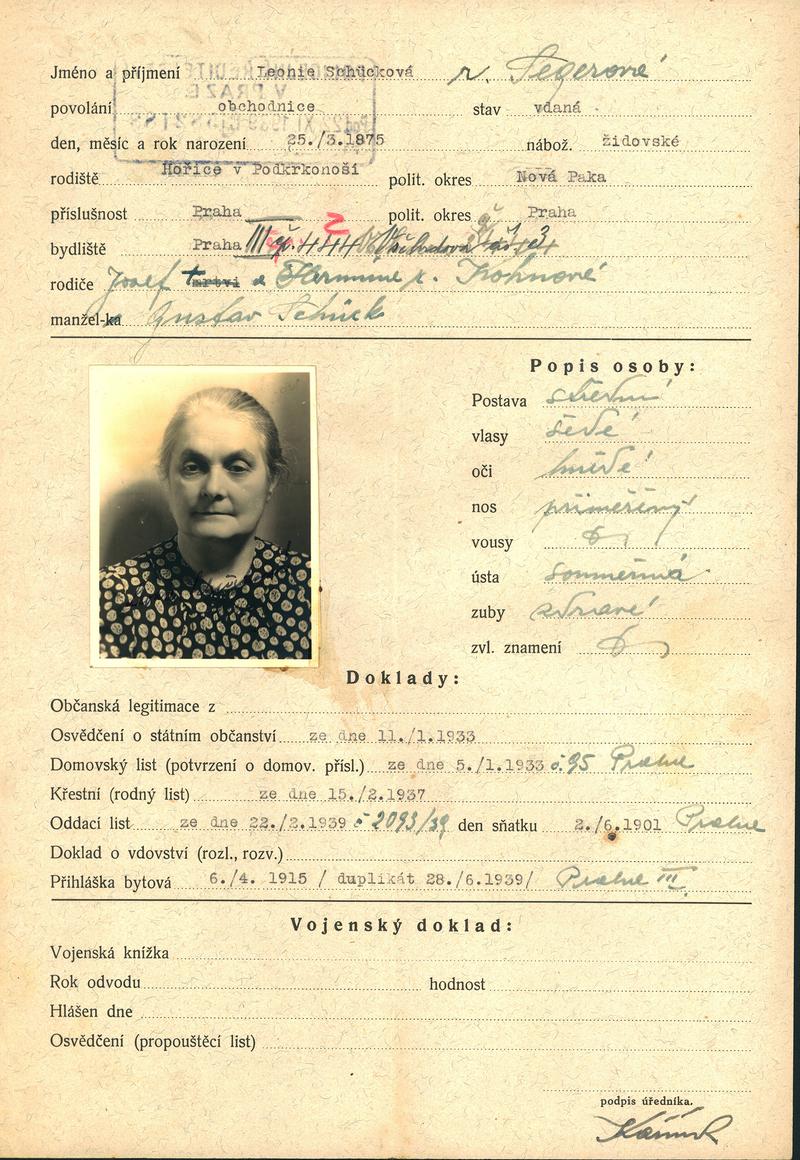 Jméno a příjmení Leonie Schücková r. Segerové
povolání obchodnice stav vdaná
den, měsíc a rok narození 25./3.1875 nábož. židovské
rodiště Hořice v Podkrkonoší polit. okres Nová Paka
příslušnost Praha polit. okres Praha
bydliště Praha III čp. 444
rodiče Josef mrtví a Hermine r. Kohnové
manžel-ka Gustav Schück
Popis osoby:
Postava střední
vlasy šedé
oči hnědé
nos přiměřený
vousy
ústa souměrná
zuby zdravé
zvl. znamení
Doklady:
Občanská legitimace z
Osvědčení o státním občanství ze dne 11./1.1933
Domovský list (potvrzení o domov. přísl.) ze dne 5./1.1933 č.95 Praha
Křestní (rodný list) ze dne 15./2.1937
Oddací list ze dne 22./2.1939 č 2093/39 den sňatku 2./6.1901 Praha
Doklad o vdovství (rozl., rozv.)
Přihláška bytová 6./4. 1915 / duplikát 28./6.1939/ Praha III.
Vojenský doklad:
Vojenská knížka
Rok odvodu hodnost
Hlášen dne
Osvědčení (propouštěcí list)
podpis úředníka.